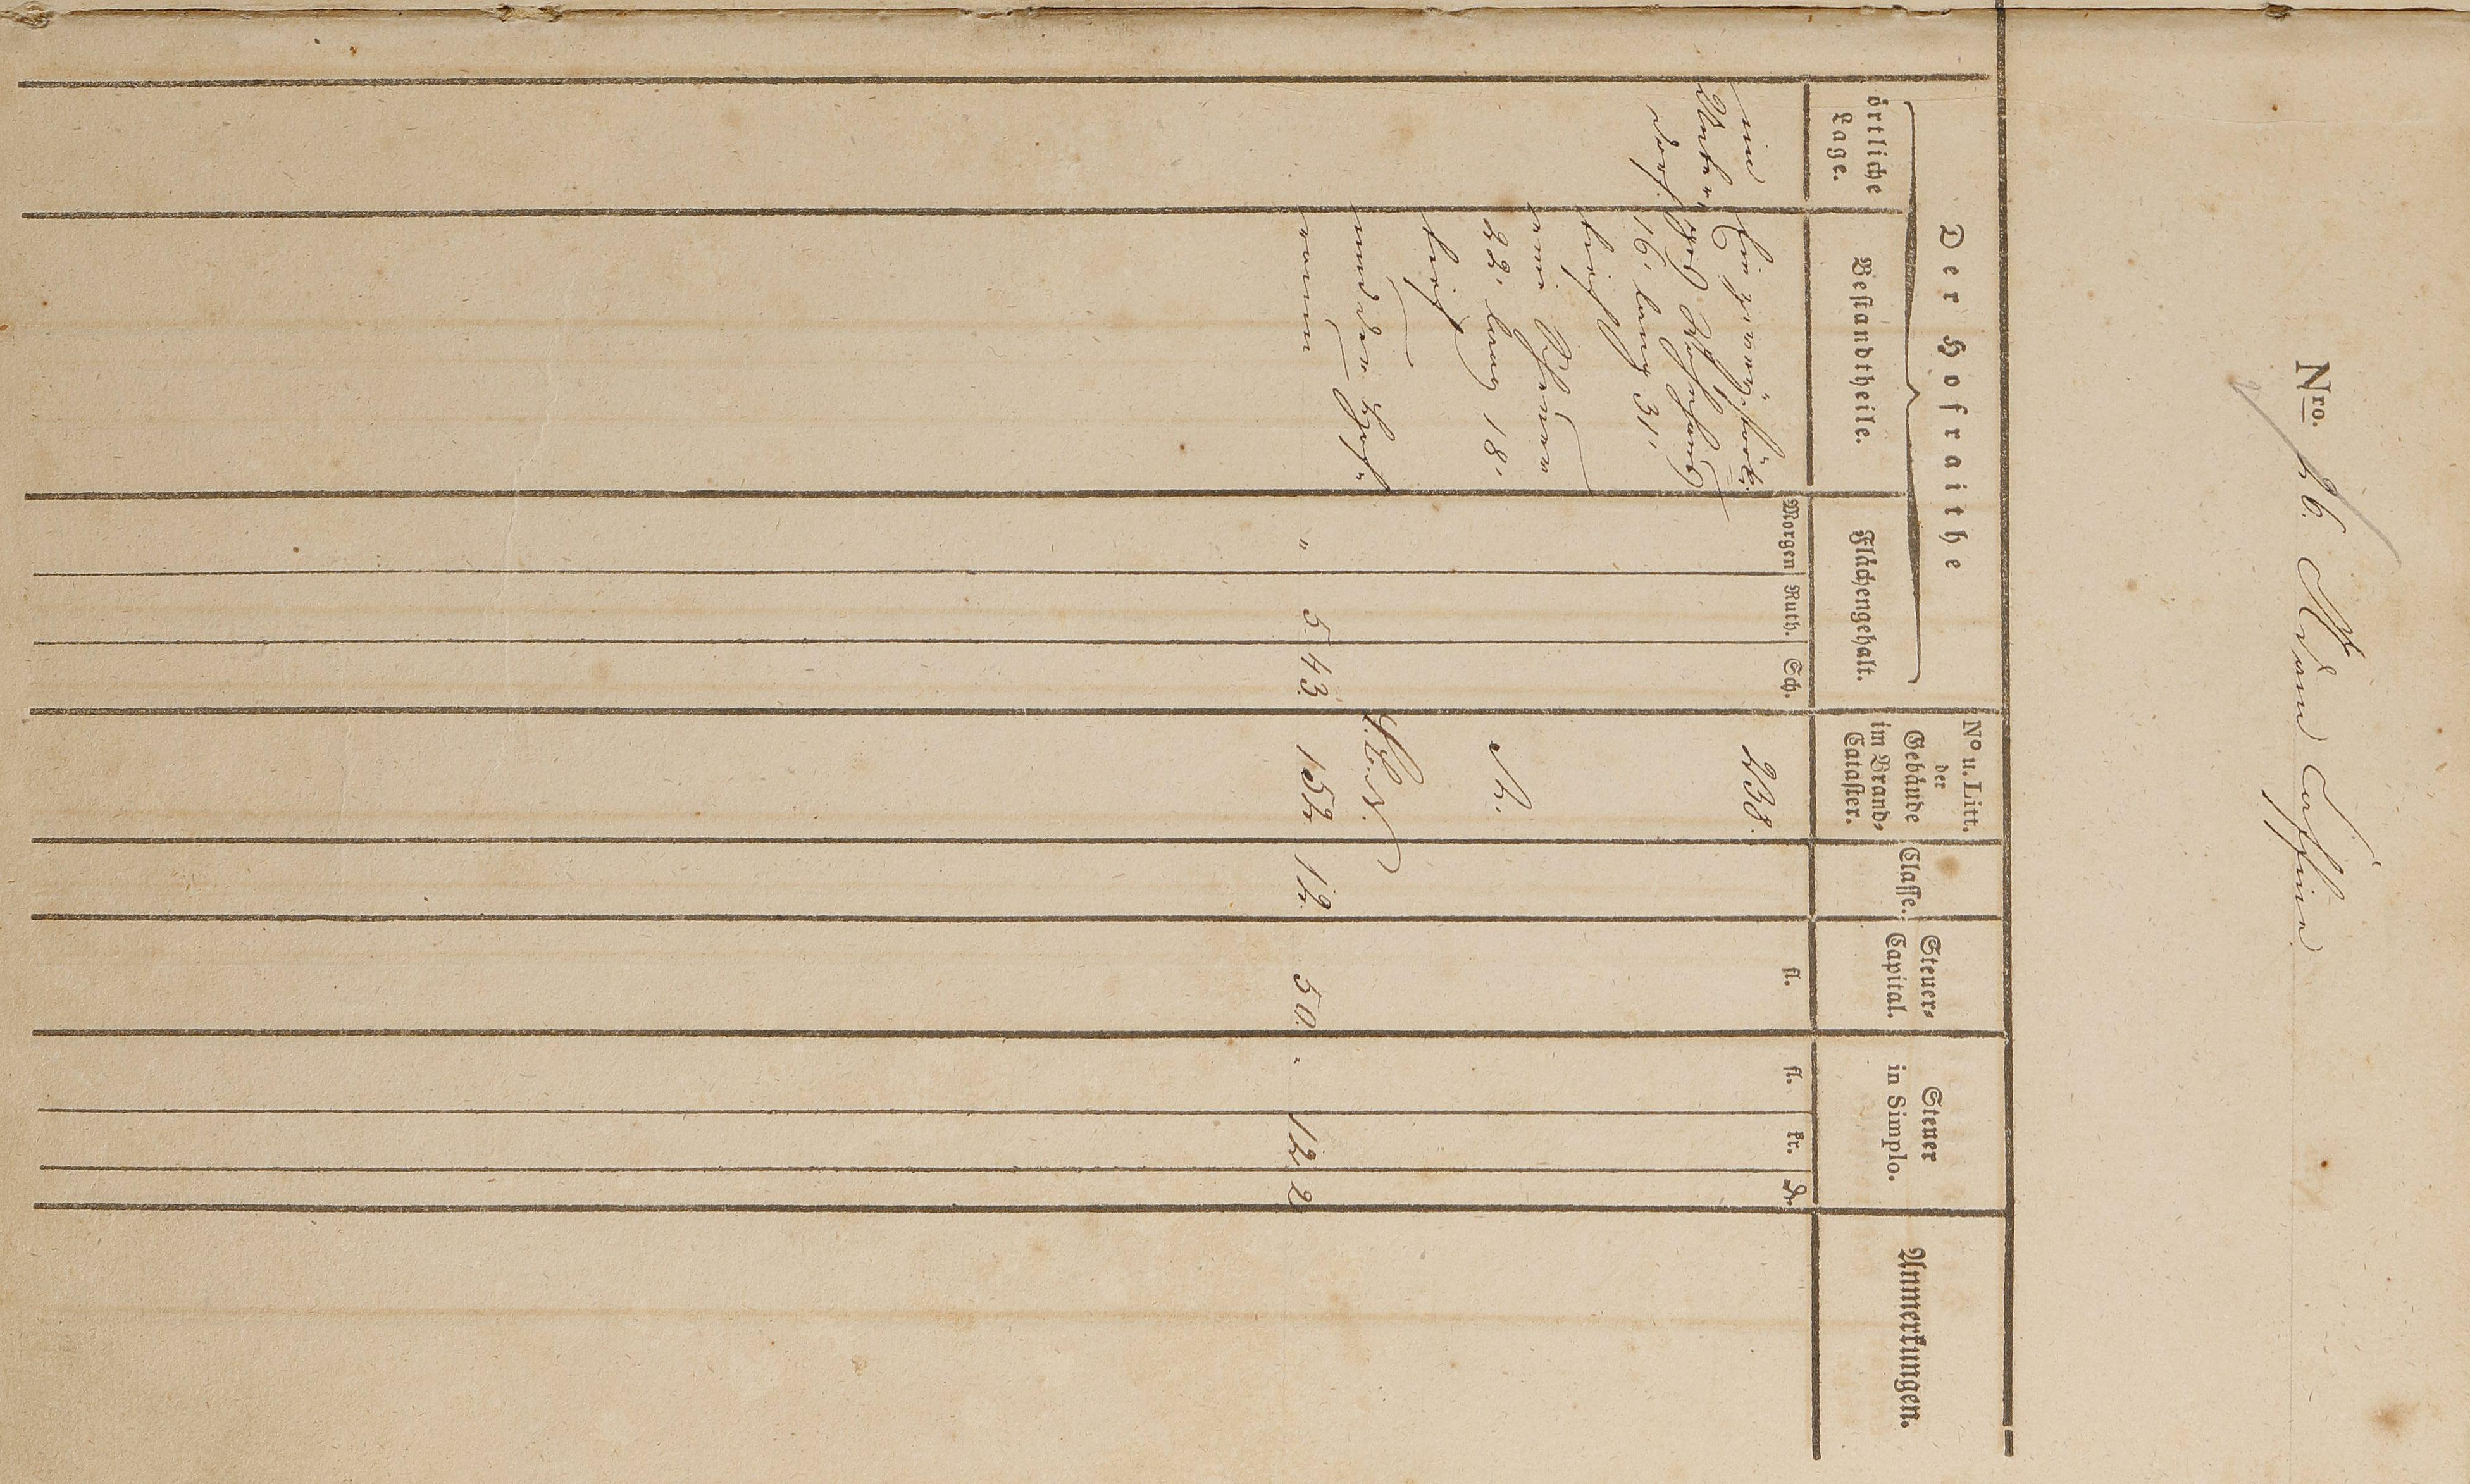 Nro. 26. Adam
Der Hofraithe
örtliche Lage.
Bestandtheile.
Flächengehalt.
Morgen
Ruth.
Sch.
No u. Litt. der Gebäude im Brand-Cataster.
Classe.
Steuer-Capital.
fl.
Steuer in Simplo.
fl.
kr.
Anmerkungen.
im
Unter-
dorf.
Ein zweistöck.
Wohnhaus
16' lang 31'
tief
eine Scheuer
22' lang 18'
tief
und der Hof-
raum
238.
" 5. 43. 152. 12. 50. " 12 2